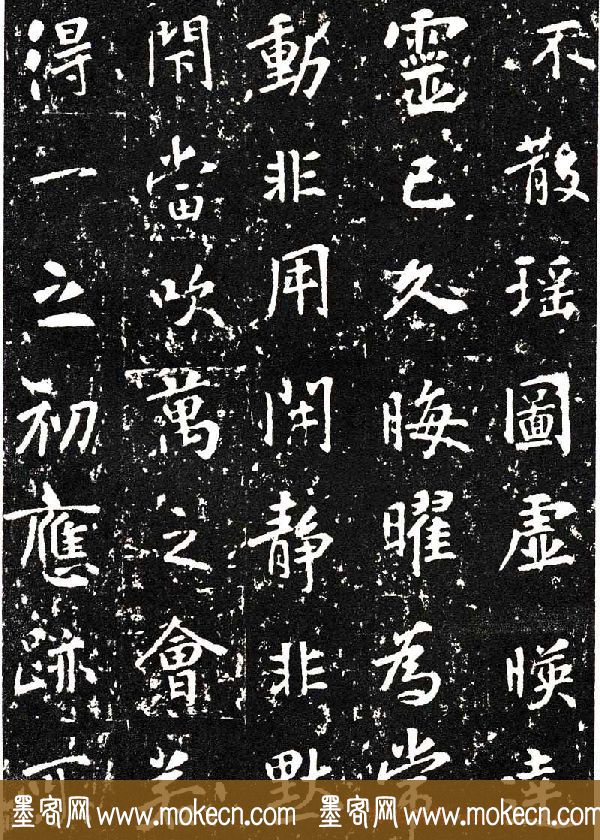 不散瑶圖虛暎
靈已久晦曜為常
動非用開靜非
閇當吹萬之會若
得一之初應跡可
墨客网 www.mokecn.com 墨客网 www.mokecn.com